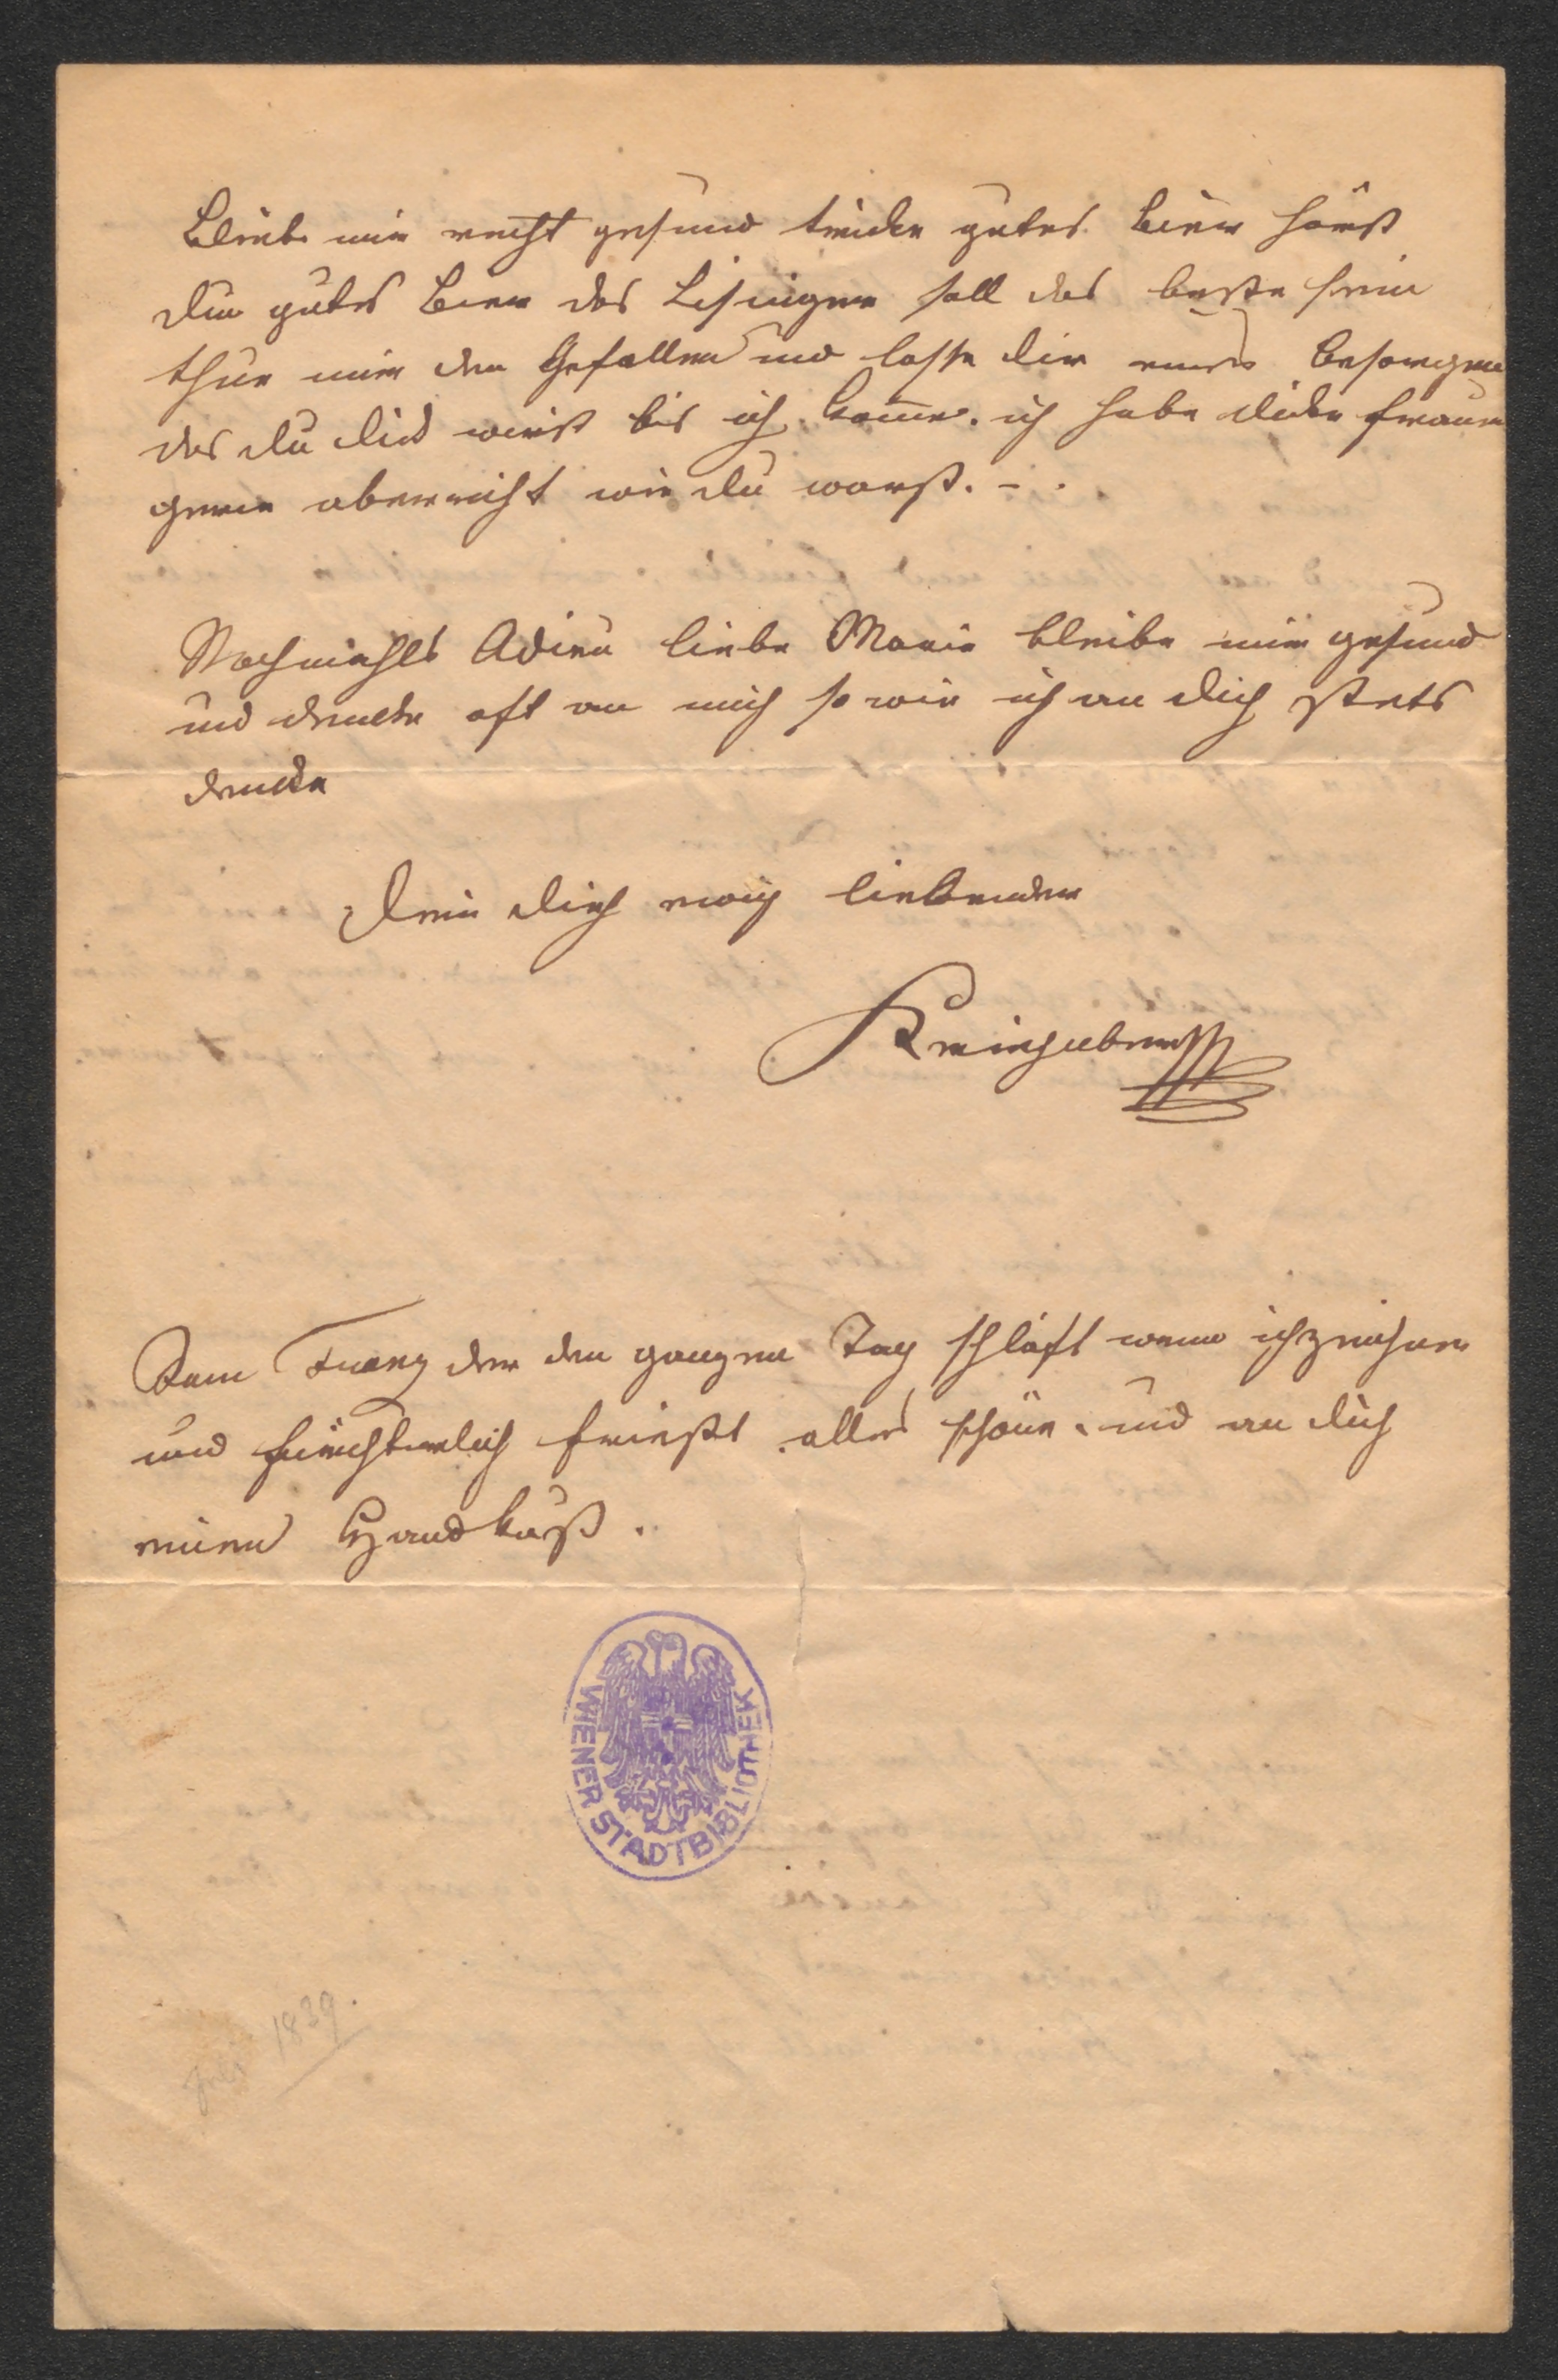 Bleibe mir recht gesund trinke gutes Bier hörst
Du gutes Bier das Lisinger soll das beste sein
thue mir den Gefallen und lasse dir eines besorgen
das du dick wirst bis ich komme. ich habe dicke Frauen
gerne aber nicht wie du warst. – .
Nochmahls Adieu liebe Marie bleibe mir gesund
und denke oft an mich so wie ich an dich stets
denke
Dein dich ewig liebender
Kriehuber
Dem Franz der den ganzen Tag schläft wenn ich zeichne
und fürchterlich frießt alles schöne. und an dich
einen Handkuß.
WIENER STADTBIBLIOTHEK
Juli 1839.